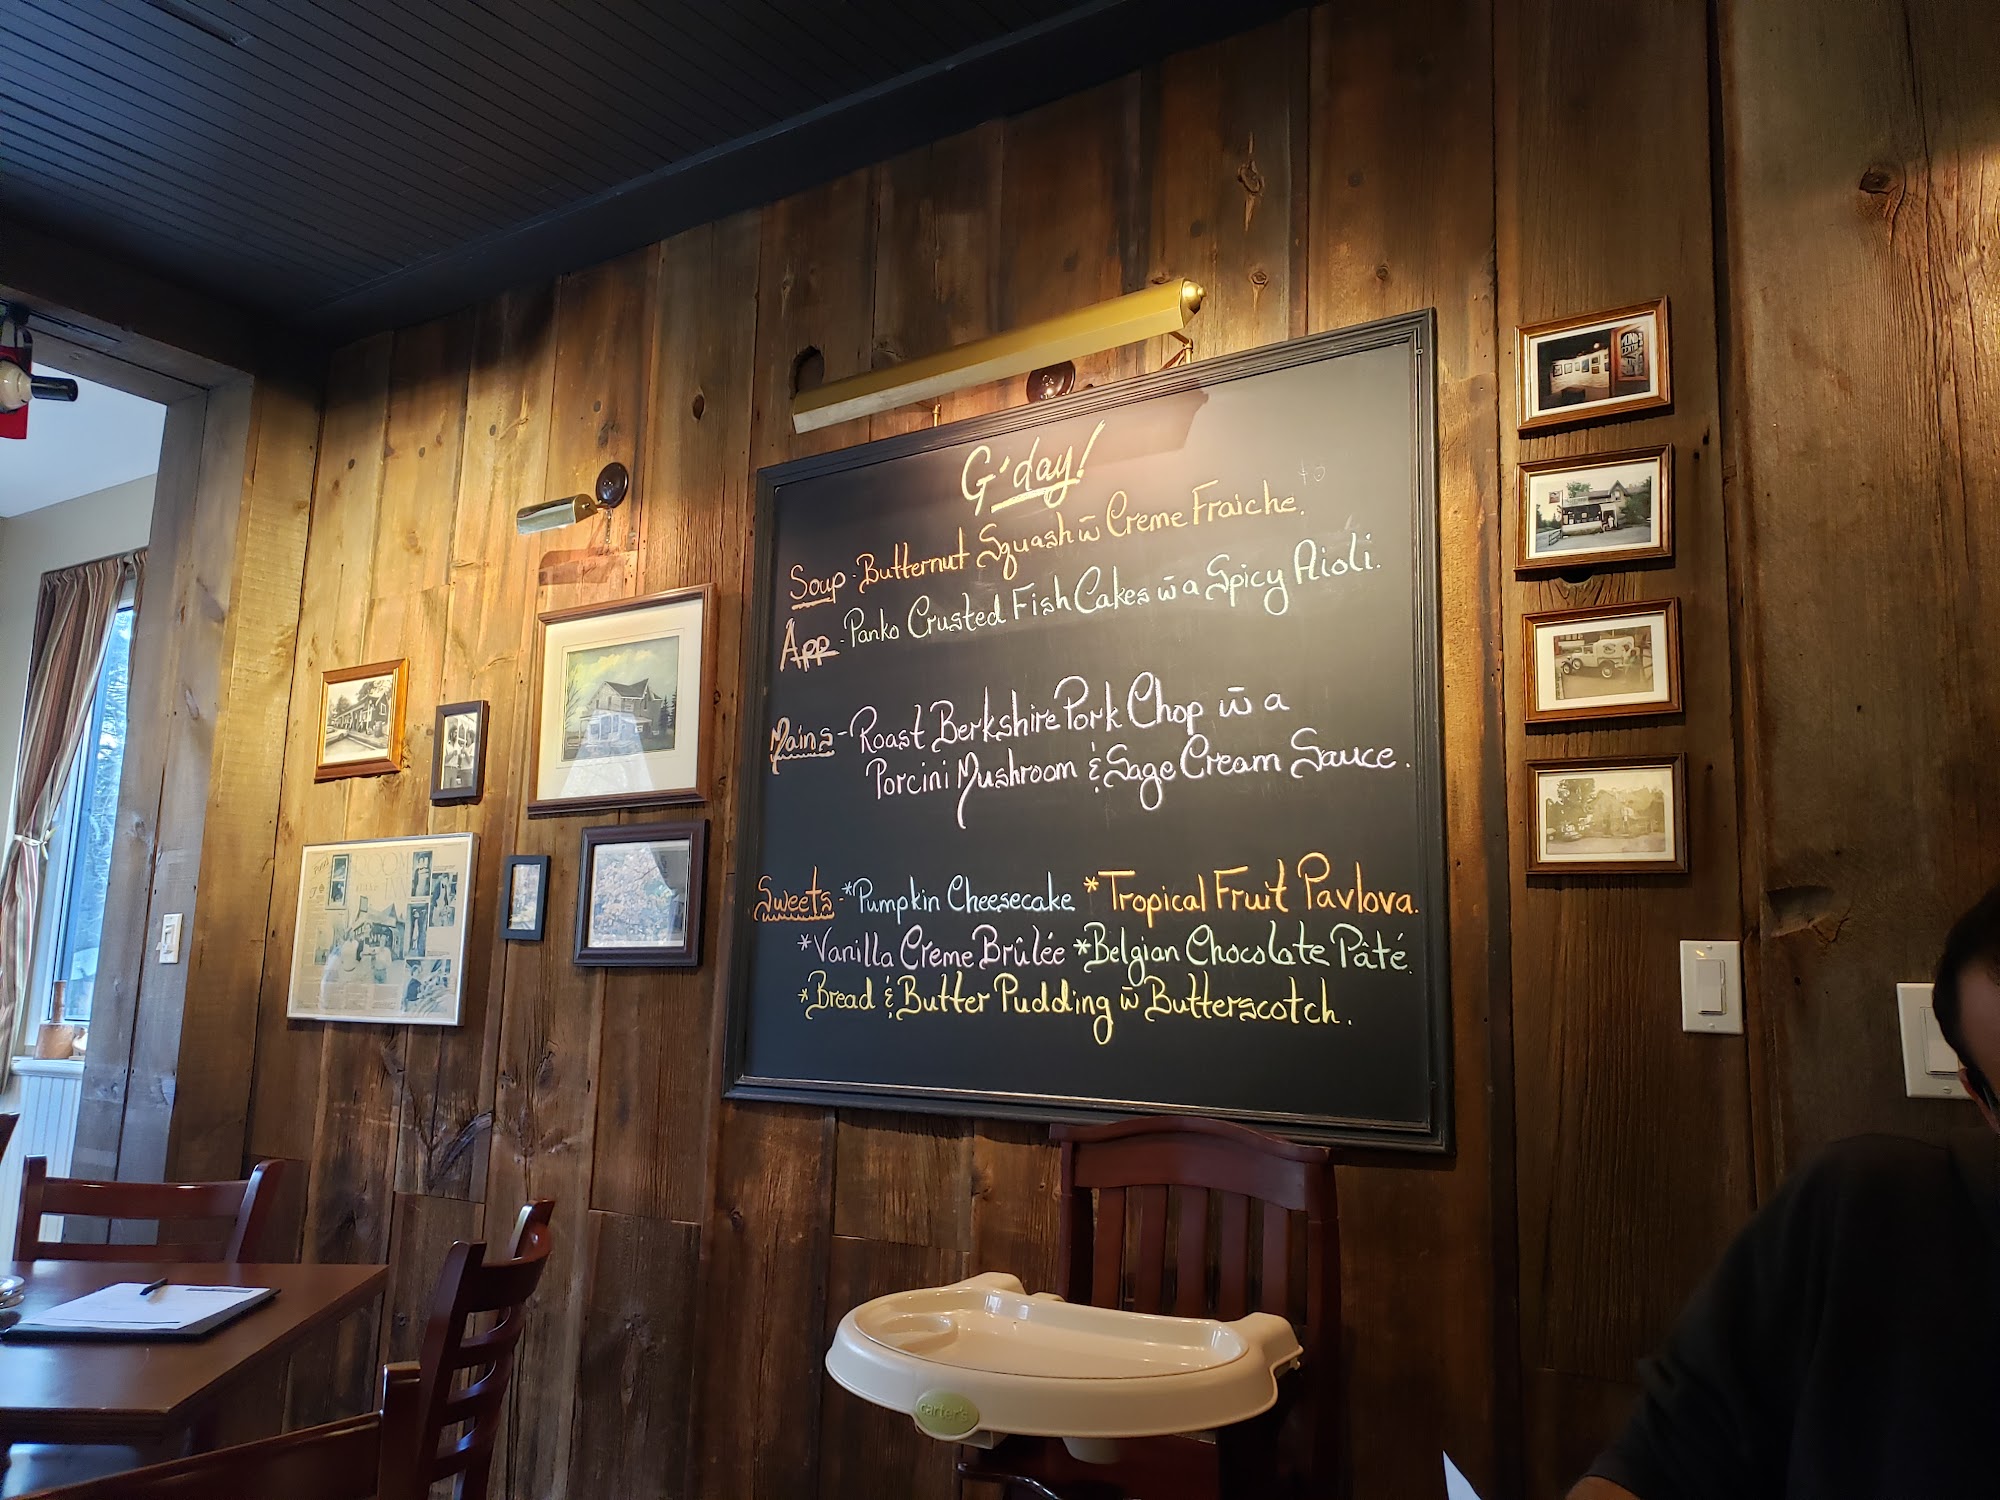 G'day!
Soup - Butternut Squash w̄ Creme Fraiche.
App - Panko Crusted Fish Cakes w̄ a Spicy Aioli.
Mains - Roast Berkshire Pork Chop w̄ a
Porcini Mushroom & Sage Cream Sauce.
Sweets - *Pumpkin Cheesecake *Tropical Fruit Pavlova.
*Vanilla Creme Brûlée *Belgian Chocolate Pâté.
*Bread & Butter Pudding w̄ Butterscotch.
carter's